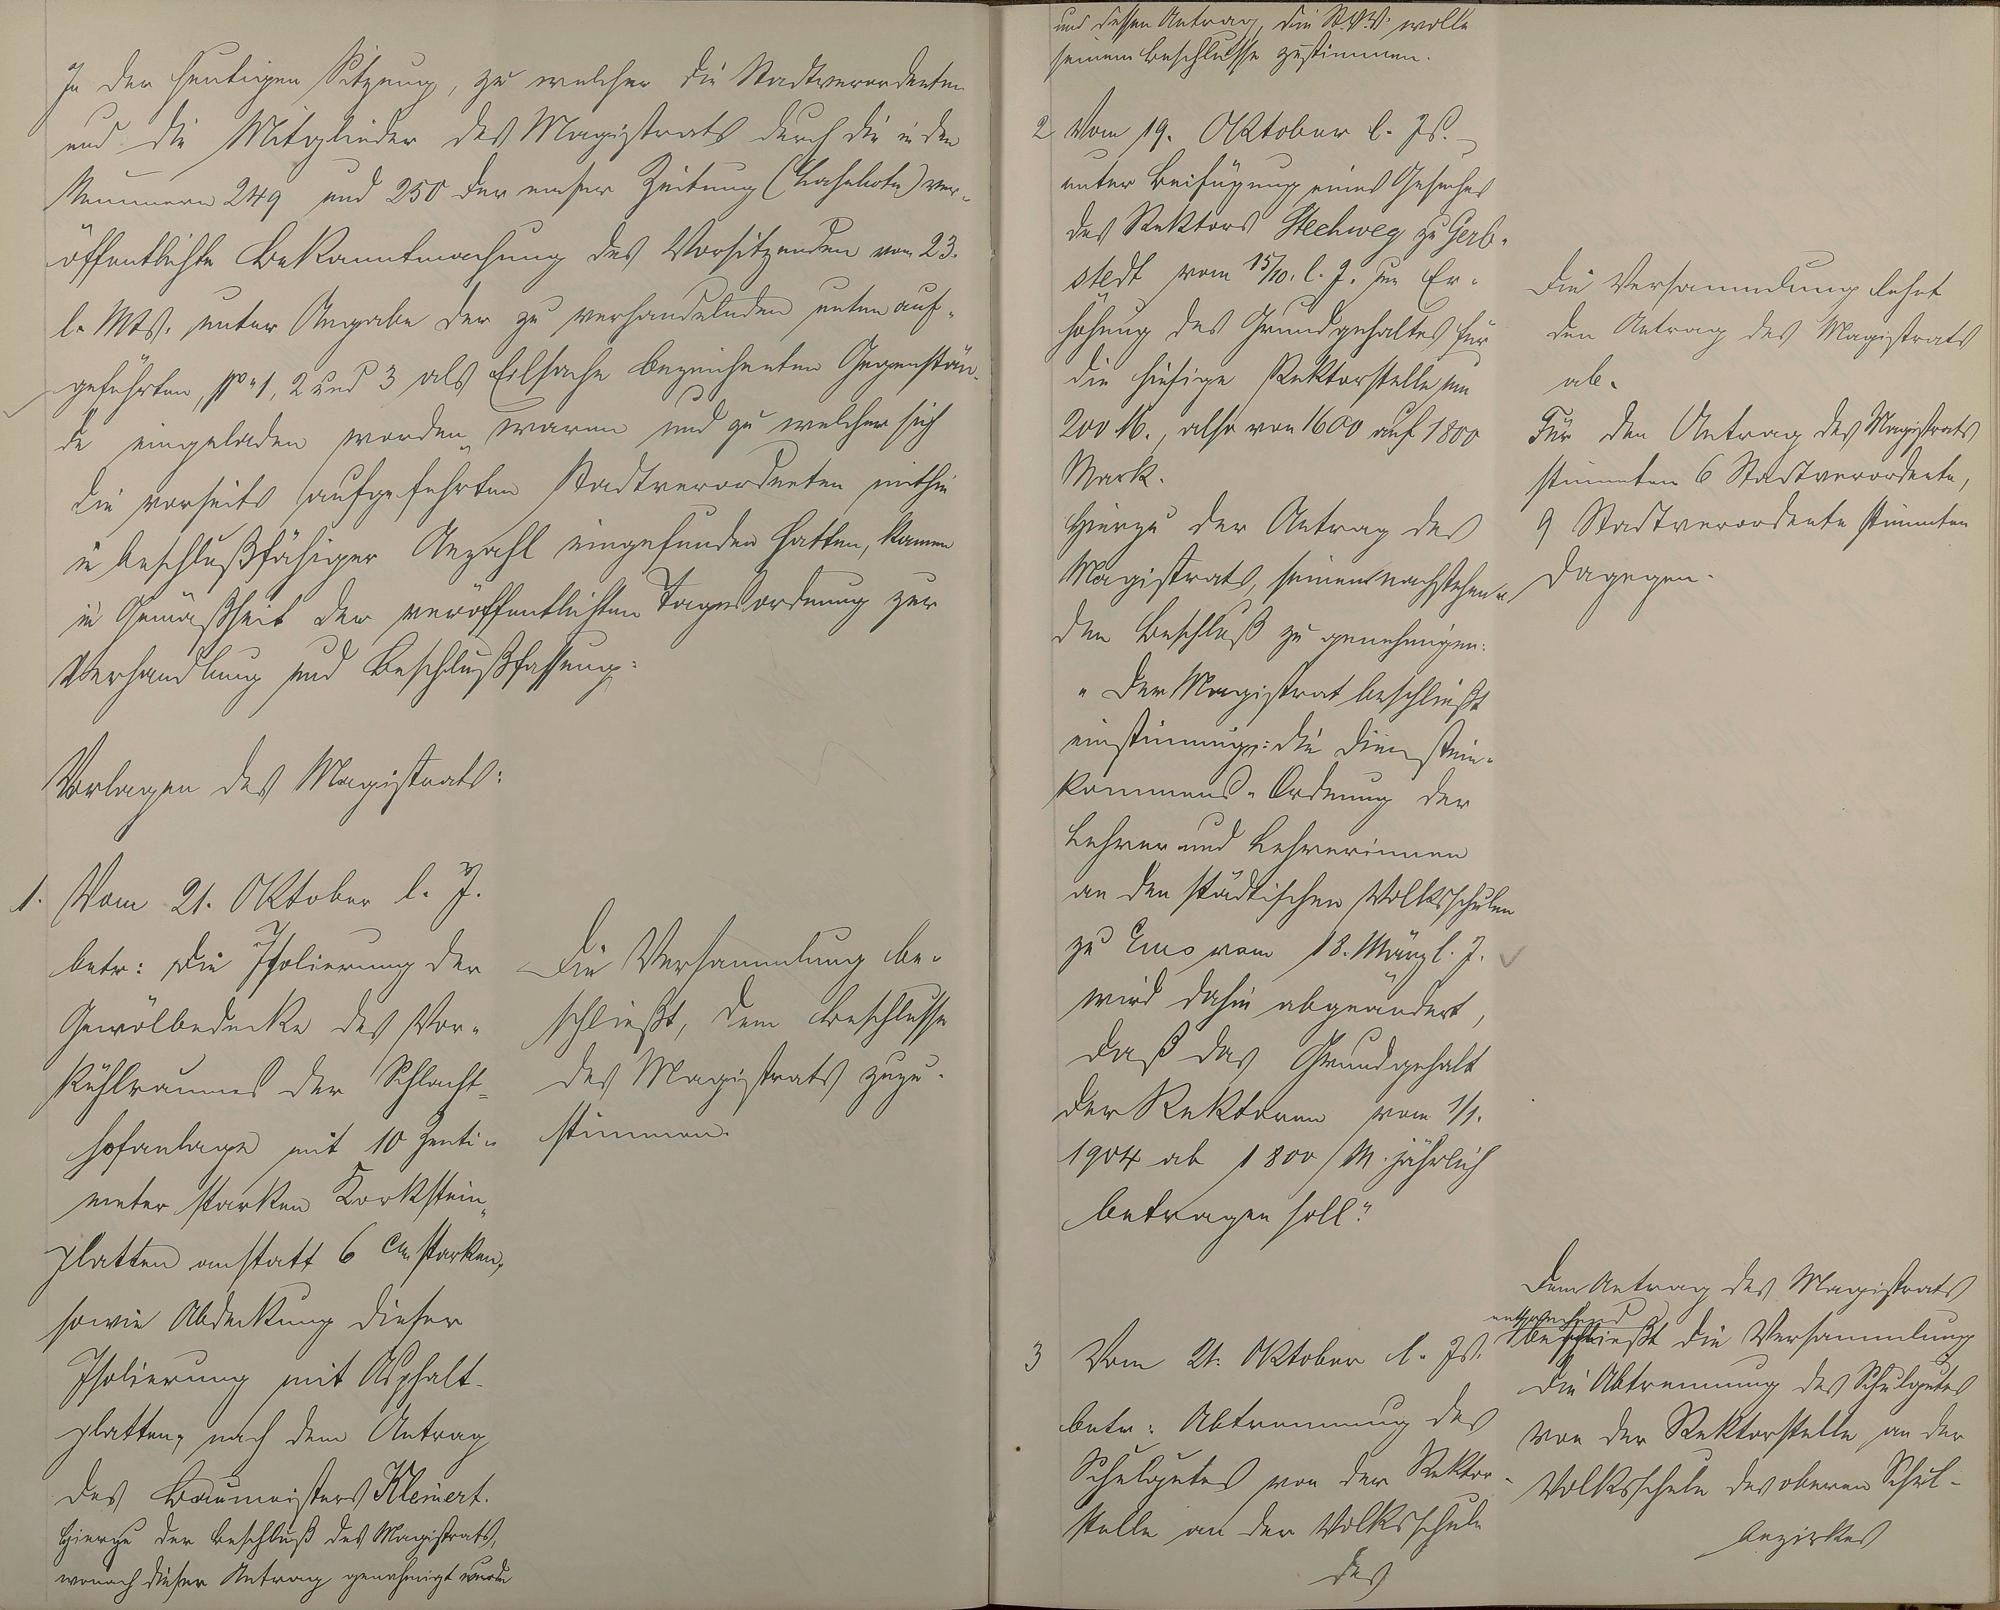 In der heutigen Sitzung, zu welcher die Stadtverordneten
und die Mitglieder des Magistrats durch die in den
Nummern 249 und 250 der emser Zeitung (Lahnbote) ver-
öffentlichte Bekanntmachung des Vorsitzenden vom 23.
l. Mts. unter Angabe der zu verhandelnden unten auf-
geführten, No 1, 2 und 3 als Eilsache bezeichneten Gegenstän-
de eingeladen worden waren und zu welcher sich
die vorseits aufgeführten Stadtverordneten mithin
in beschlußfähiger Anzahl eingefunden hatten, kamen
in Gemäßheit der veröffentlichten Tagesordnung zur
Verhandlung und Beschlußfassung:
Vorlagen des Magistrats:
1. Vom 21. Oktober l. J.
betr: die Isolierung der
Gewölbedecke des Vor-
kühlraumes der Schlacht-
hofanlage mit 10 Zenti-
meter starken Korkstein-
platten anstatt 6 cm starken,
sowie Abdeckung dieser
Isolierung mit Asphalt-
platten, nach dem Antrag
des Baumeisters Kleinert.
Hierzu der Beschluß des Magistrats,
wonach dieser Antrag genehmigt wurde
Die Versammlung be-
schließt, dem Beschlusse
des Magistrats zuzu-
stimmen.
und dessen Antrag, die St.V.V. wolle
seinem Beschlusse zustimmen.
2 Vom 19. Oktober l. Js.
unter Beifügung eines Gesuches
des Rektors Stechweg zu Gerb-
stedt vom 15/10. l. J. um Er-
höhung des Grundgehaltes für
die hiesige Rektorstelle um
200 M., also von 1600 auf 1800
Mark.
Hierzu der Antrag des
Magistrats, seinen nachstehen-
den Beschluß zu genehmigen:
"Der Magistrat beschließt
einstimmig: die Dienstein-
kommens-Ordnung der
Lehrer und Lehrerinnen
an den städtischen Volksschulen
zu Ems vom 18. März l. J.
wird dahin abgeändert,
daß das Grundgehalt
der Rektoren vom 1/1.
1904 ab 1800 M. jährlich
betragen soll."
Die Versammlung lehnt
den Antrag des Magistrats
ab.
Für den Antrag des Magistrats
stimmten 6 Stadtverordnete,
9 Stadtverordnete stimmten
dagegen.
3 Vom 21. Oktober l. Js.
betr: Abtrennung des
Schulgutes von der Rektor-
stelle an der Volksschule
des
Dem Antrag des Magistrats
entsprechend
beschließt die Versammlung
die Abtrennung des Schulgutes
von der Rektorstelle an der
Volksschule des oberen Schul-
bezirkes